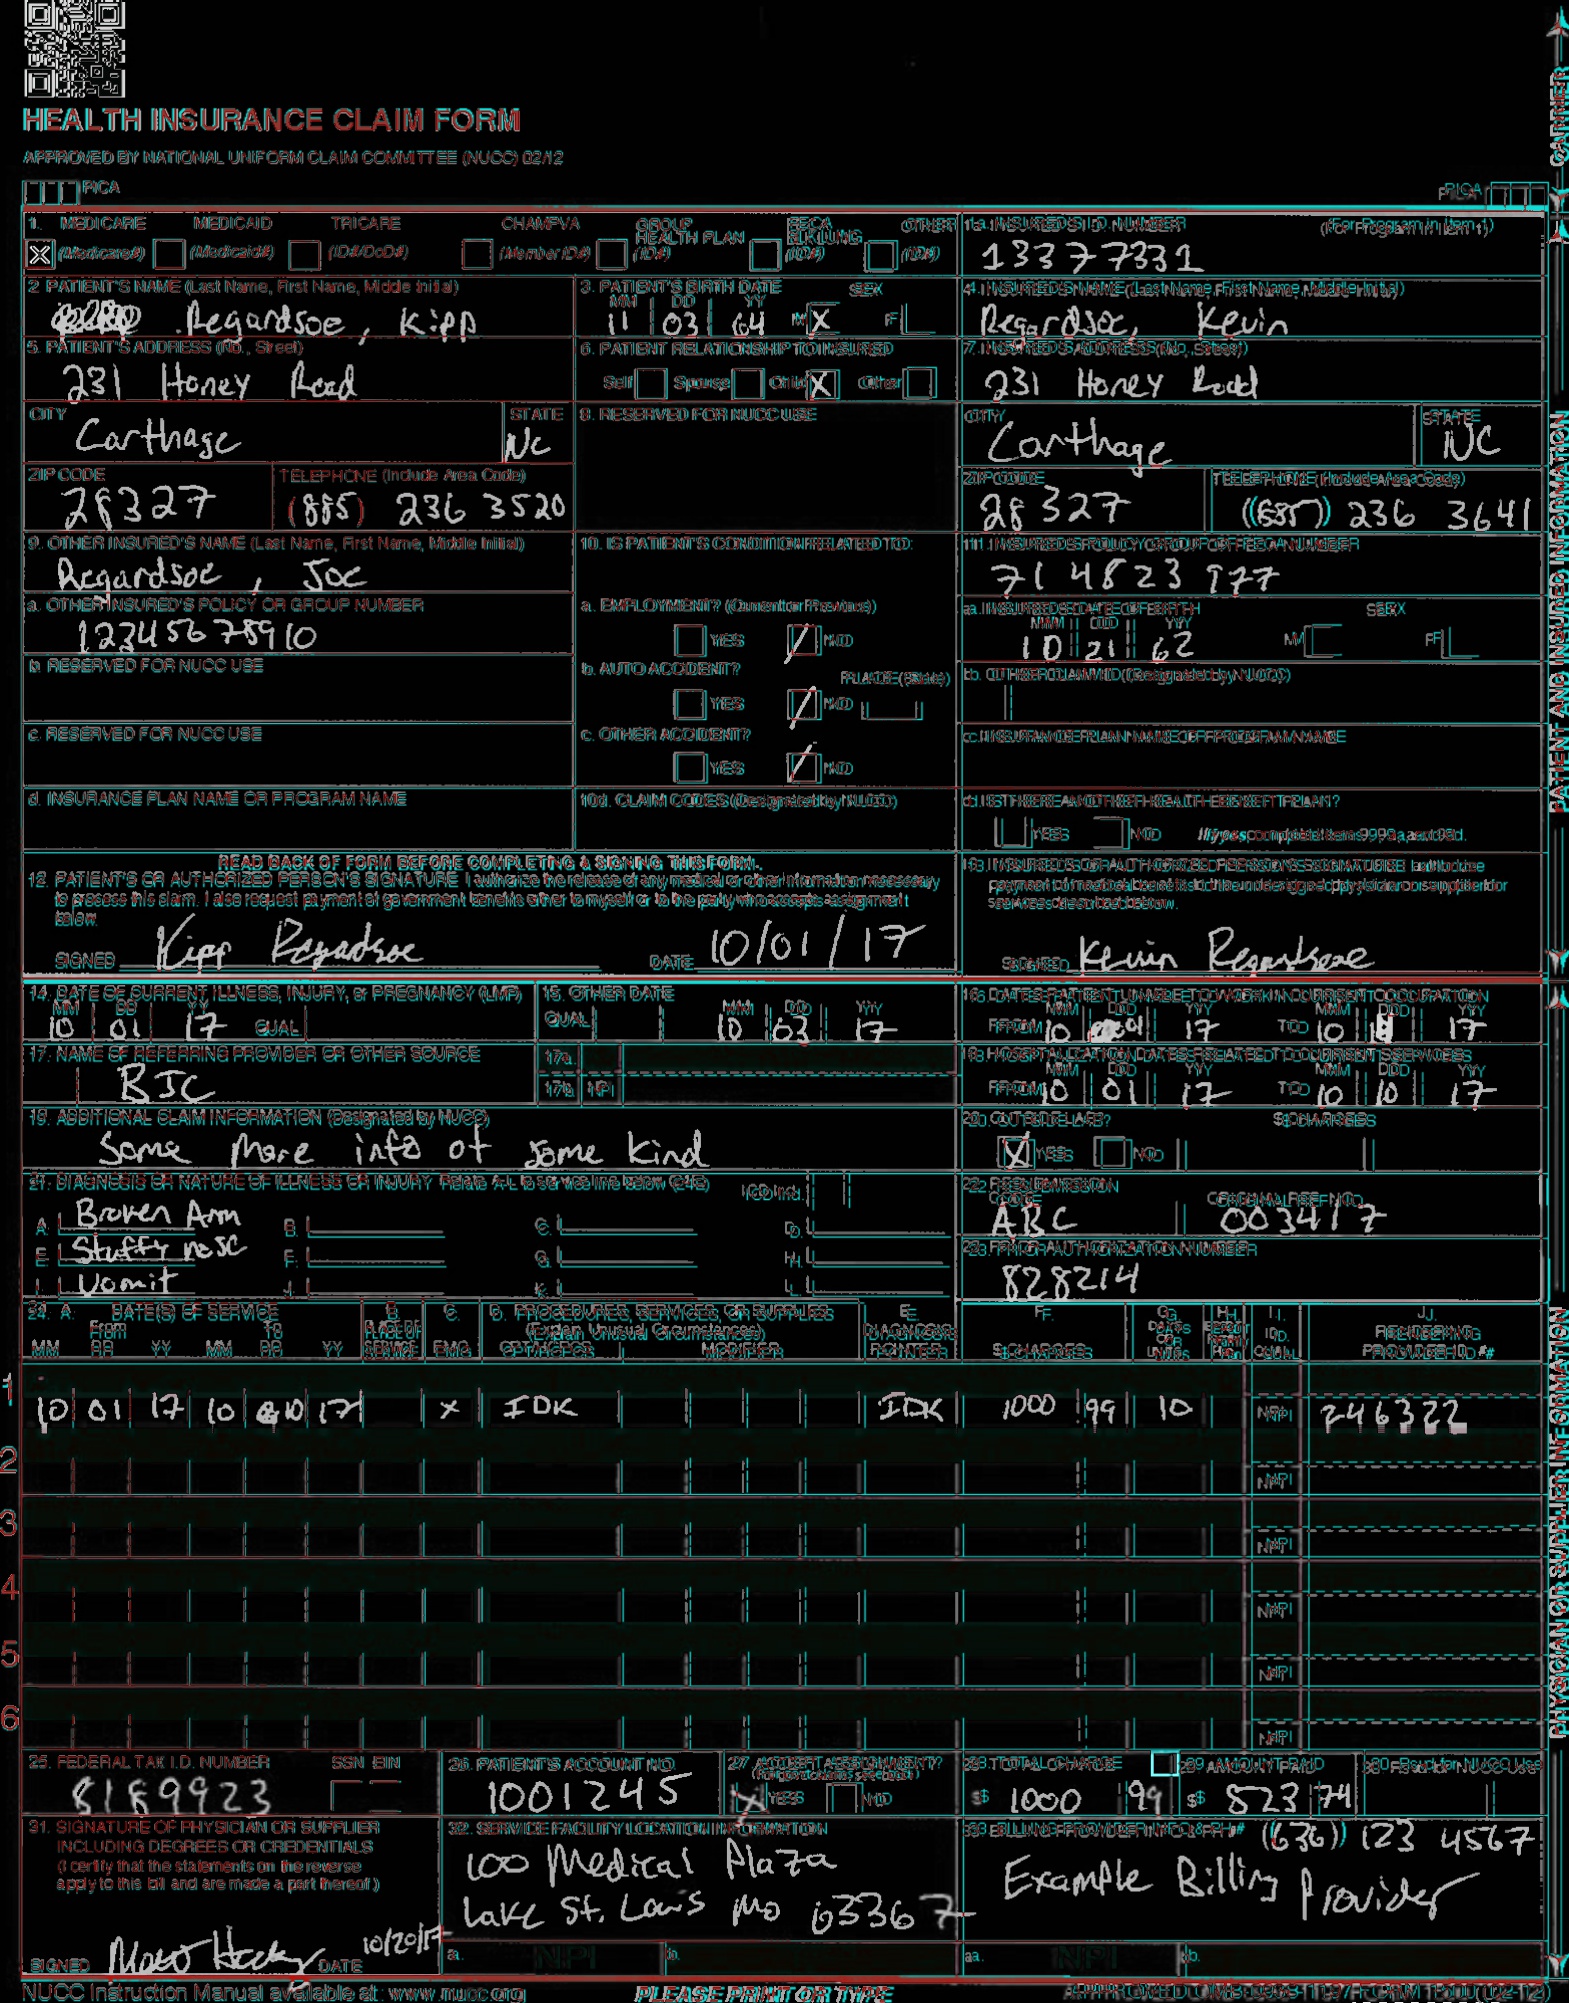 HEALTH INSURANCE CLAIM FORM
APPROVED BY NATIONAL UNIFORM CLAIM COMMITTEE (NUCC) 02/12
PICA PICA
CARRIER
1. MEDICARE MEDICAID TRICARE CHAMPVA GROUP HEALTH PLAN FECA BLK LUNG OTHER
X (Medicare#) (Medicaid#) (ID#/DoD#) (Member ID#) (ID#) (ID#) (ID#)
1a. INSURED'S I.D. NUMBER (For Program in Item 1)
13377331
2. PATIENT'S NAME (Last Name, First Name, Middle Initial)
Regardsoe, Kipp
3. PATIENT'S BIRTH DATE SEX
MM DD YY
11 03 64 M X F
4. INSURED'S NAME (Last Name, First Name, Middle Initial)
Regardsoe, Kevin
5. PATIENT'S ADDRESS (No., Street)
231 Honey Road
6. PATIENT RELATIONSHIP TO INSURED
Self Spouse Child X Other
7. INSURED'S ADDRESS (No., Street)
231 Honey Road
CITY STATE
Carthage NC
8. RESERVED FOR NUCC USE
CITY STATE
Carthage NC
ZIP CODE TELEPHONE (Include Area Code)
28327 (885) 236 3520
ZIP CODE TELEPHONE (Include Area Code)
28327 236 3641
9. OTHER INSURED'S NAME (Last Name, First Name, Middle Initial)
Regardsoe, Joe
10. IS PATIENT'S CONDITION RELATED TO:
11. INSURED'S POLICY GROUP OR FECA NUMBER
71 4823 977
a. OTHER INSURED'S POLICY OR GROUP NUMBER
12345678910
a. EMPLOYMENT? (Current or Previous)
YES NO
a. INSURED'S DATE OF BIRTH SEX
MM DD YY
10 21 62 M F
b. RESERVED FOR NUCC USE
b. AUTO ACCIDENT? PLACE (State)
YES NO
b. OTHER CLAIM ID (Designated by NUCC)
c. RESERVED FOR NUCC USE
c. OTHER ACCIDENT?
YES NO
c. INSURANCE PLAN NAME OR PROGRAM NAME
d. INSURANCE PLAN NAME OR PROGRAM NAME
10d. CLAIM CODES (Designated by NUCC)
d. IS THERE ANOTHER HEALTH BENEFIT PLAN?
YES NO If yes, complete items 9, 9a, and 9d.
PATIENT AND INSURED INFORMATION
READ BACK OF FORM BEFORE COMPLETING & SIGNING THIS FORM.
12. PATIENT'S OR AUTHORIZED PERSON'S SIGNATURE I authorize the release of any medical or other information necessary
to process this claim. I also request payment of government benefits either to myself or to the party who accepts assignment
below.
SIGNED Kipp Regardsoe DATE 10/01/17
13. INSURED'S OR AUTHORIZED PERSON'S SIGNATURE I authorize
payment of medical benefits to the undersigned physician or supplier for
services described below.
SIGNED Kevin Regardsoe
14. DATE OF CURRENT ILLNESS, INJURY, or PREGNANCY (LMP)
MM DD YY
10 01 17 QUAL
15. OTHER DATE
QUAL MM DD YY
10 03 17
16. DATES PATIENT UNABLE TO WORK IN CURRENT OCCUPATION
MM DD YY MM DD YY
FROM 10 01 17 TO 10 17
17. NAME OF REFERRING PROVIDER OR OTHER SOURCE
BJC
17a.
17b. NPI
18. HOSPITALIZATION DATES RELATED TO CURRENT SERVICES
MM DD YY MM DD YY
FROM 10 01 17 TO 10 10 17
19. ADDITIONAL CLAIM INFORMATION (Designated by NUCC)
Some more info of some kind
20. OUTSIDE LAB? $ CHARGES
X YES NO
21. DIAGNOSIS OR NATURE OF ILLNESS OR INJURY Relate A-L to service line below (24E) ICD Ind.
A. Broken Arm B. C. D.
E. Stuffy nose F. G. H.
I. Vomit J. K. L.
22. RESUBMISSION CODE ORIGINAL REF. NO.
ABC 003417
23. PRIOR AUTHORIZATION NUMBER
828214
24. A. DATE(S) OF SERVICE B. PLACE OF SERVICE C. EMG D. PROCEDURES, SERVICES, OR SUPPLIES E. DIAGNOSIS POINTER F. $ CHARGES G. DAYS OR UNITS H. EPSDT Family Plan I. ID. QUAL. J. RENDERING PROVIDER ID. #
From To (Explain Unusual Circumstances)
MM DD YY MM DD YY CPT/HCPCS MODIFIER
1 10 01 17 10 10 17 X IDK IDK 1000 99 10 NPI 246322
2 NPI
3 NPI
4 NPI
5 NPI
6 NPI
PHYSICIAN OR SUPPLIER INFORMATION
25. FEDERAL TAX I.D. NUMBER SSN EIN
8189923
26. PATIENT'S ACCOUNT NO.
1001245
27. ACCEPT ASSIGNMENT?
(For govt. claims, see back)
X YES NO
28. TOTAL CHARGE
$ 1000 99
29. AMOUNT PAID
$ 823 74
30. Rsvd for NUCC Use
31. SIGNATURE OF PHYSICIAN OR SUPPLIER
INCLUDING DEGREES OR CREDENTIALS
(I certify that the statements on the reverse
apply to this bill and are made a part thereof.)
SIGNED DATE 10/20/17
32. SERVICE FACILITY LOCATION INFORMATION
100 Medical Plaza
Lake St. Louis Mo 63367
a. NPI b.
33. BILLING PROVIDER INFO & PH # (636) 123 4567
Example Billing Provider
a. NPI b.
NUCC Instruction Manual available at: www.nucc.org
PLEASE PRINT OR TYPE